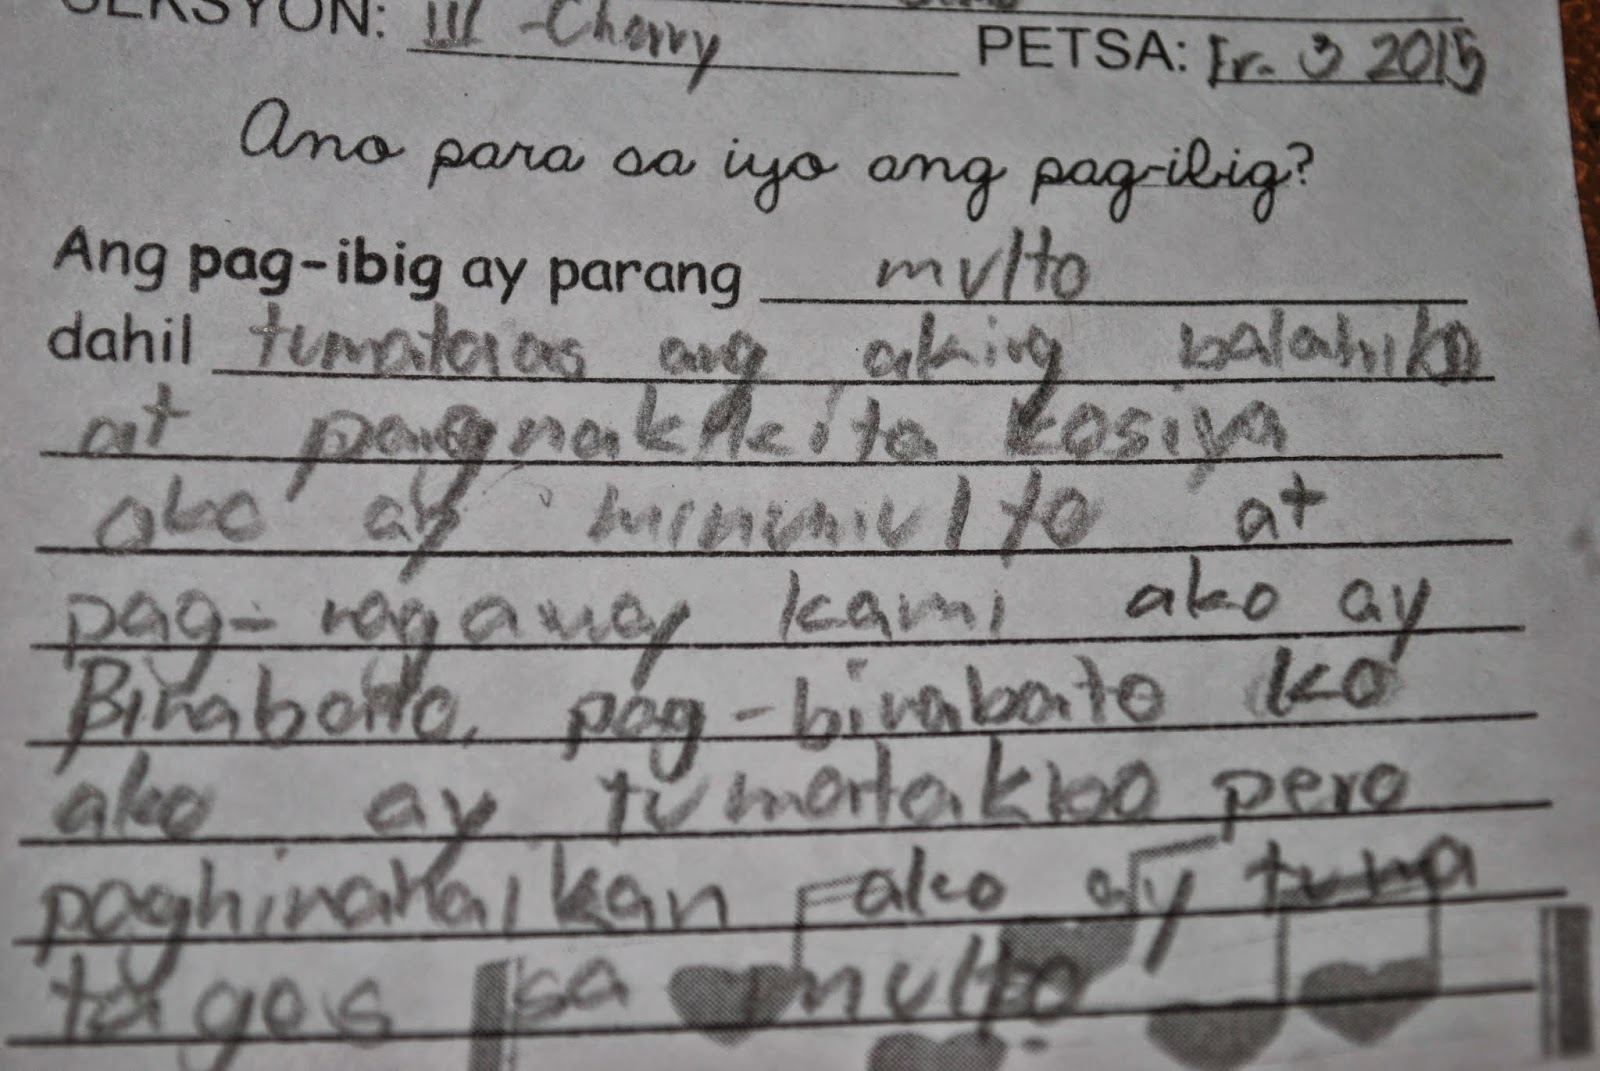 SEKSYON: III - Cherry PETSA: 3 2015
Ano para sa iyo ang pag-ibig?
Ang pag-ibig ay parang multo
dahil tumataas ang aking balahiko
at pagnakikita kosiya
ako ay minumulto at
pag-nagaaway kami ako ay
Binabato, pag-binabato ko
ako ay tumatakbo pero
paghinahalikan ako ay tuma
tagos sa multo.